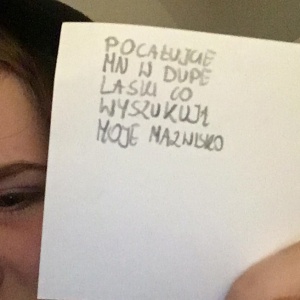 POCAŁUJCIE
MN W DUPE
LASKI CO
WYSZUKUJĄ
MOJE NAZWISKO